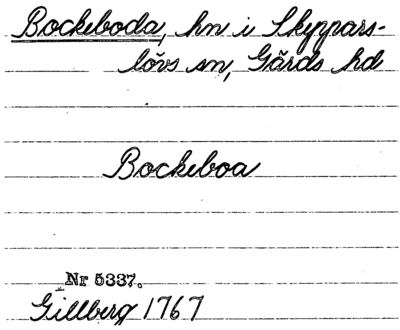 Bockeboda, hn i Skyppars-
lövs sn, Gärds hd
Bockeboa
Nr 5337.
Gillberg 1767